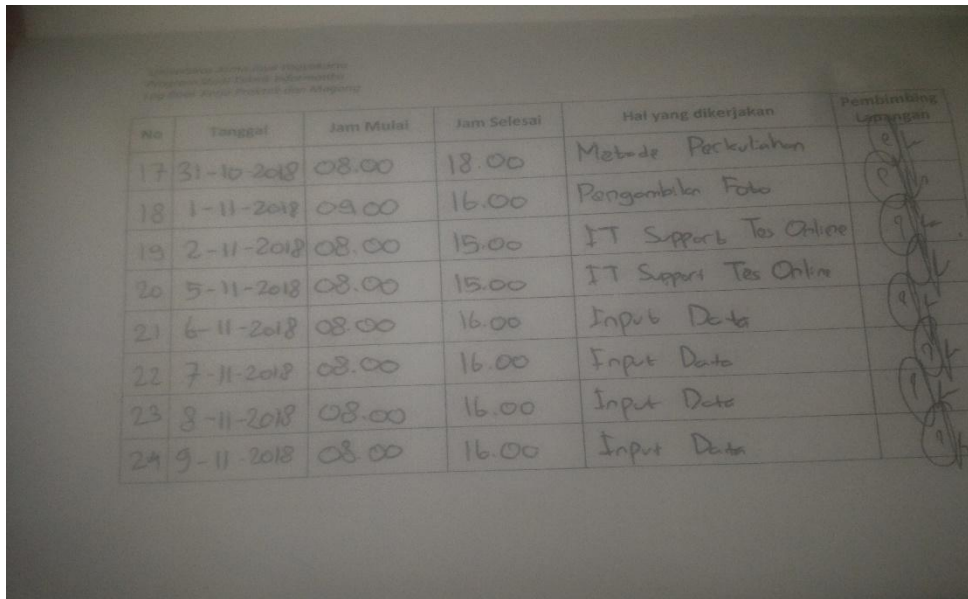 Program Studi Teknik Informatika
Log Book Kerja Praktek dan Magang
No Tanggal Jam Mulai Jam Selesai Hal yang dikerjakan Pembimbing Lapangan
17 31-10-2018 08.00 18.00 Metode Perkuliahan
18 1-11-2018 09.00 16.00 Pengambilan Foto
19 2-11-2018 08.00 15.00 IT Support Tes Online
20 5-11-2018 08.00 15.00 IT Support Tes Online
21 6-11-2018 08.00 16.00 Input Data
22 7-11-2018 08.00 16.00 Input Data
23 8-11-2018 08.00 16.00 Input Data
24 9-11-2018 08.00 16.00 Input Data